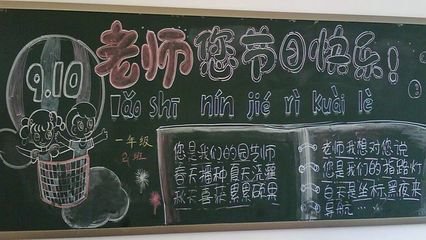 9.10
老师您节日快乐!
lǎo shī nín jié rì kuài lè
一年级
2班
您是我们的园艺师
春天播种夏天浇灌
秋天喜获累累硕果
老师我想对您说
您是我们的指路灯
白天是坐标黑夜来
导航